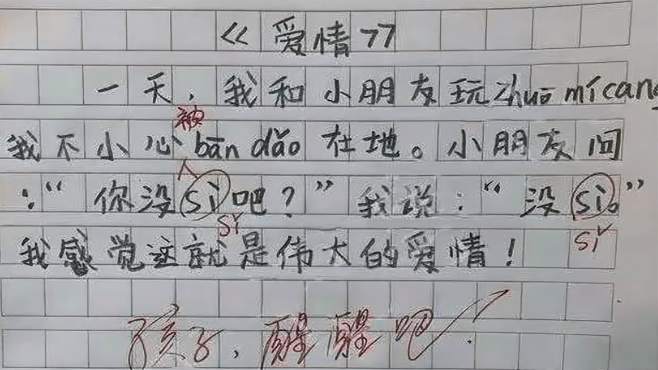 《爱情》
一天，我和小朋友玩zhuō mícang
被
我不小心bān dǎo在地。小朋友问
：“你没sì吧？”我说：“没sì。”
sǐ sǐ
我感觉这就是伟大的爱情！
孩子，醒醒吧！